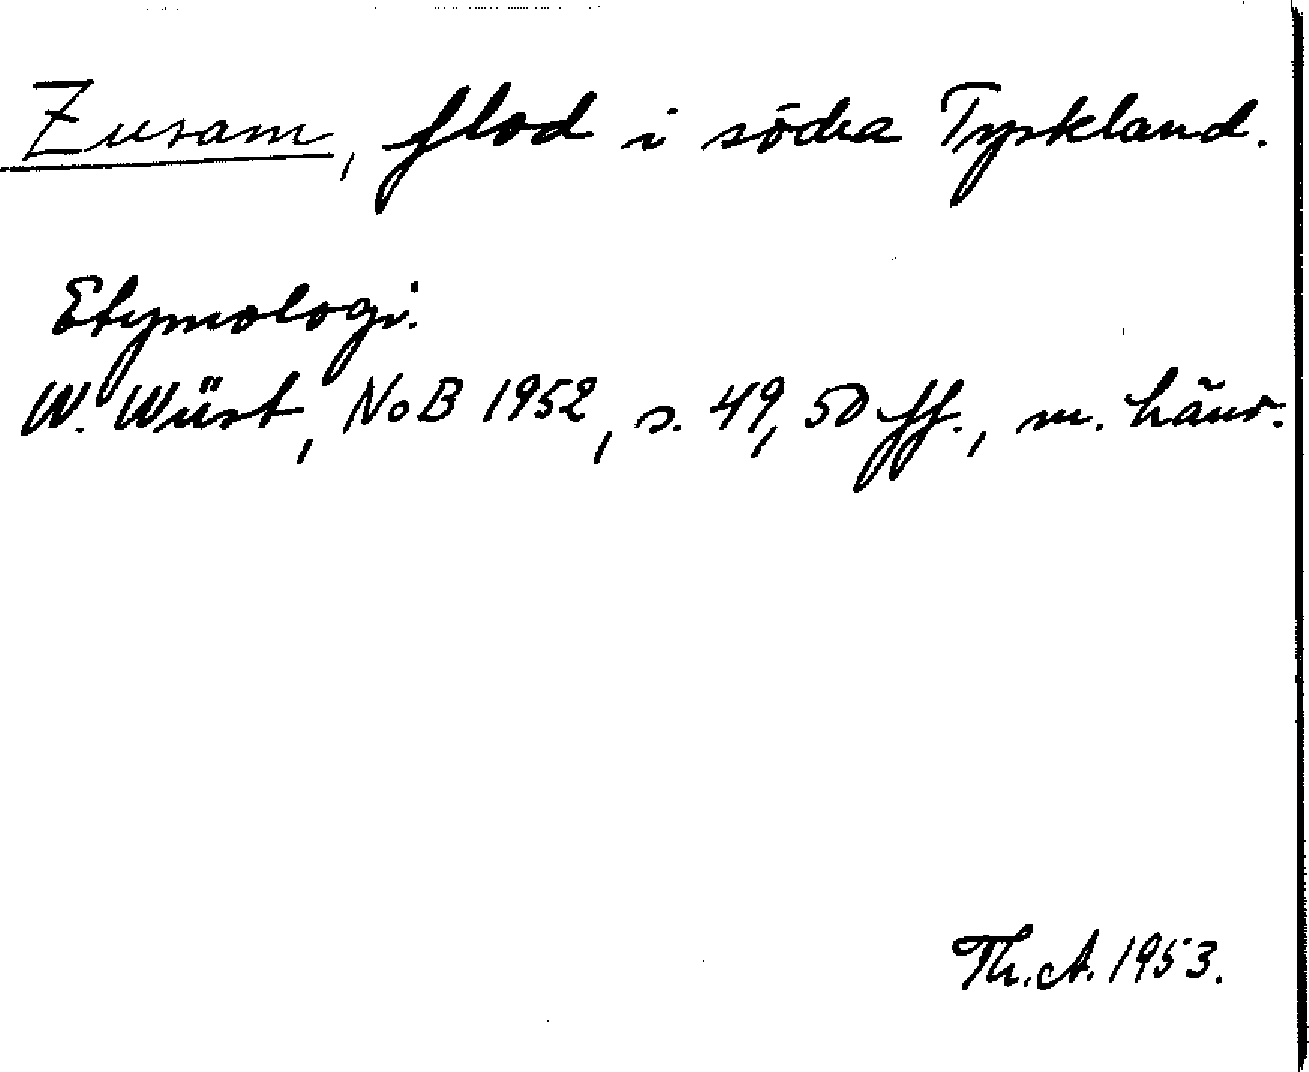 Zusam, flod i södra Tyskland.
Etymologi.
W. Wüst, NoB 1952, s. 49, 50 ff., m. hänv.
Th. A. 1953.